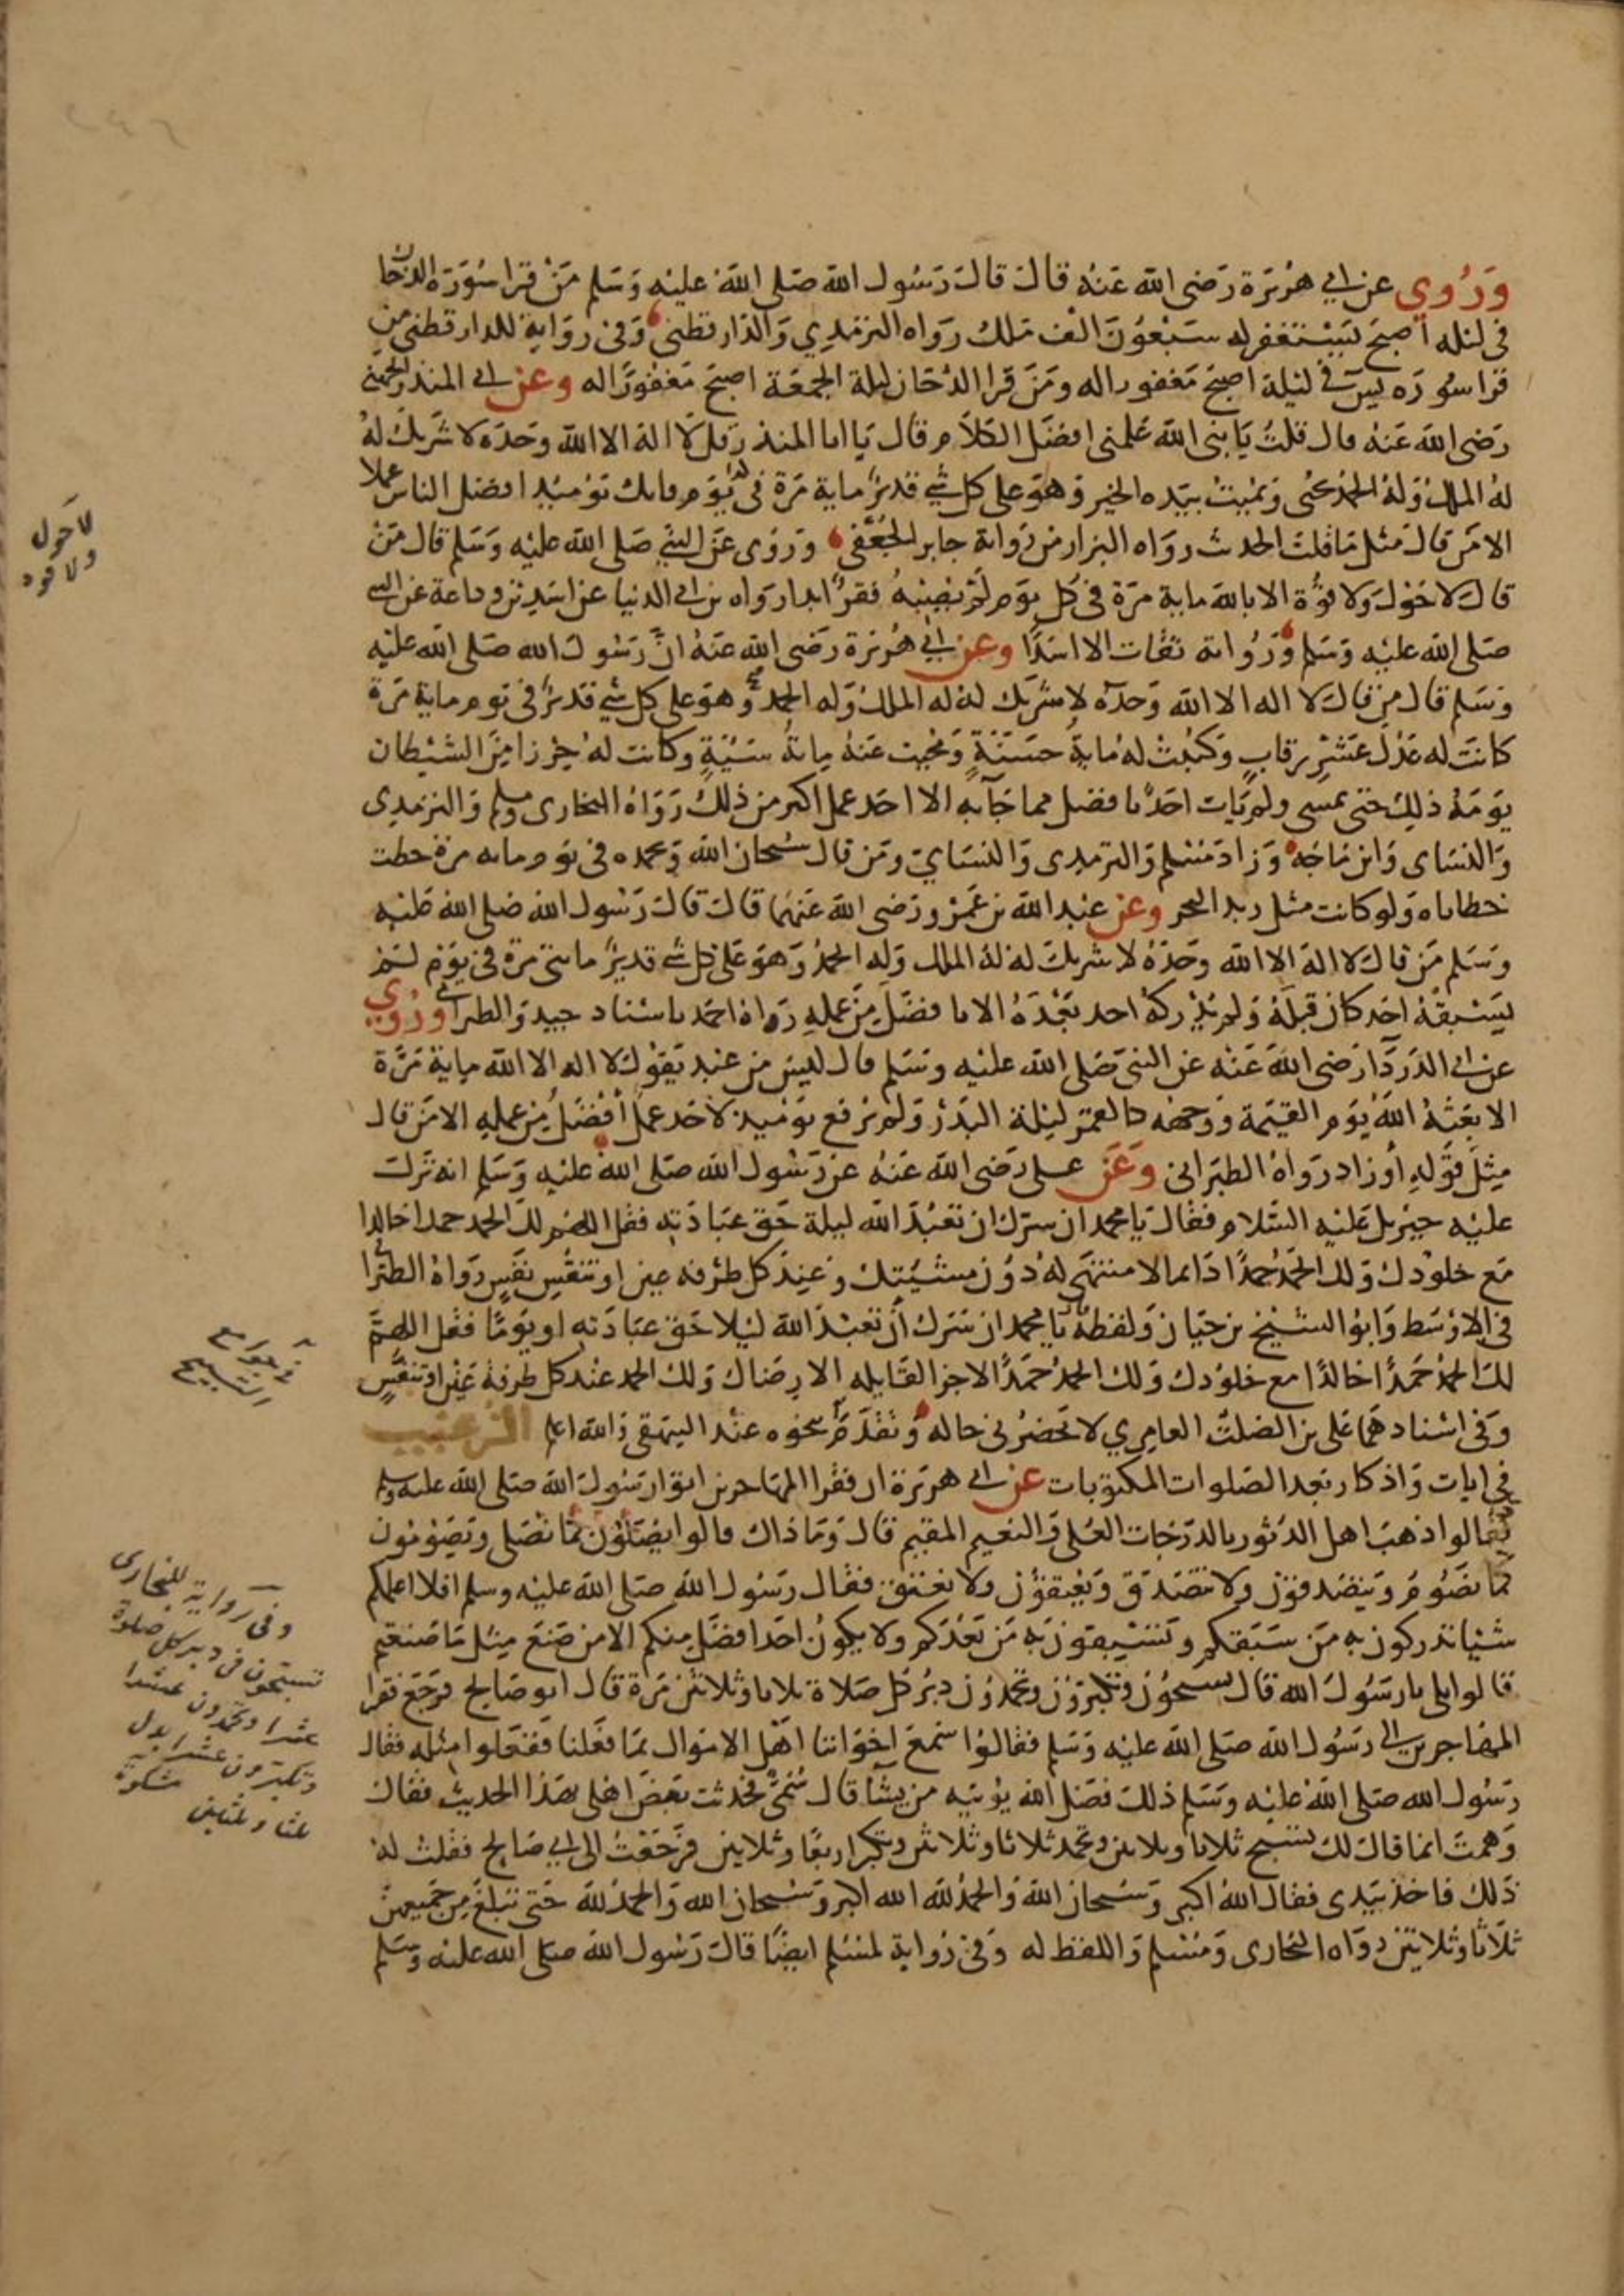 وَرُوي عن ابي هُرَيرَة رَضى الله عَنهُ قال قال رَسُول الله صَلى اللهُ عَليه وَسَلم مَنْ قرا سُوَرَة الدخان
فى ليله اصبحَ يَسْتغفر له سَبْعُوَن الف مَلك رَوَاه الترمذِي وَالدَّارقطنى وَفى روَاية للدارقطنى من
قرا سورَه يس فى ليْلة اصبحَ مَغفورا له ومَن قرا الدّخان ليلة الجمعَة اصبحَ مَغفورًا له وعَن ابى المنذر الجهنى
رَضى الله عَنهُ قال قلتُ يَا نبى الله عَلمنى افضَل الكلَام قال يَا ابا المنذر قل لَا اله الا الله وحَدَه لا شَريك لهُ
لهُ الملكُ وَلهُ الحمدُ يحيى وَيميتُ بيَده الخير وَهوَ على كل شى قديرٌ ماية مَرَة فى كل يَوَم فانك يَوْميذٍ افضل الناس عملا
الا مَن قال مثل مَا قلتَ الحدث روَاه البزار من رَوَاية جابر الجُعفى وَرَوى عَن النبى صَلى الله عَليْه وَسَلم قال مَن
قال لا حَوْل وَلا قوَّة الا بالله ماية مَرَة فى كل يوَم لمْ يصبهُ فقرٌ ابدا رواه بن ابى الدنيا عن اسَدِ بن وداعة عن النبى
صَلى الله عليْه وَسَلم وَرُوَاته ثقات الا اسَدًا وعن ابى هُرَيرَة رَضى الله عَنهُ انَّ رَسُول الله صَلى الله عليْه
وَسَلم قال مَن قال لا اله الا الله وَحدَه لا شَريَك له له الملكُ وَله الحمد وَهوَ على كل شى قديرٌ فى يوم ماية مَرة
كانَت له عَدْل عَشْرِ رقابٍ وَكتبتْ لهُ مايةُ حسَنَةٍ وَمُحيت عَنهُ مايةُ سَيّئةٍ وكانت لهُ حِرْزا مِنَ الشيْطان
يوَمَهُ ذلِكَ حتى يمسى ولم يَات احَدٌ بافضل مما جَآ به الا احَد عمل اكثر من ذلك رَوَاهُ البخارى ومسلم وَالترمذى
وَالنسَاى وَابن مَاجَه وَزادَ مُسْلم وَالترمذى وَالنسَايَ ومَن قال سُبحان الله وَبحمده فى يوم مايه مرة حطت
خطاياه وَلو كانت مثل زبد البحر وعن عبد الله بن عَمْرو رَضى الله عَنهُما قال قال رَسُول الله صَلى الله عَليْه
وَسَلم مَن قال لا اله الا الله وحَدَهُ لا شريكَ له لهُ الملك وَله الحمدُ وَهوَ عَلى كل شى قديرٌ مايتى مرة فى يَوَم لم
يَسْبقهُ احَد كان قبلهُ وَلم يُدْركهُ احد بَعْدَهُ الا بافضَل مِنَ عملهِ رَوَاهُ احَمد باسْناد جيد وَالطبرانى وَرُوي
عن ابى الدَردَا رَضى الله عَنْه عن النبىَ صَلى الله عليْه وسَلم قال ليسَ من عبد يَقوْل لا اله الا الله مايةَ مَرَّة
الا بعَثهُ اللهُ يَوَم القيَمة وَوَجهه كالقمر ليْلة البَدْر وَلم يرفع يوَميذٍ لاحَد عملٌ أفضَلُ مِن عملهِ الا مَن قال
مِثلَ قوَله أو زاد رَوَاهُ الطبرانى وَعَن على رَضى الله عَنهُ عن رَسُول الله صَلى اللهُ عليْه وَسَلم انه نَزلَ
عليْه جبريل عَليْه السَّلام فقال يَا محمد ان سرّك ان تعْبُدَ الله ليلة حَق عبَادَته فقل اللهم لك الحمد حمدا خالدا
مَع خلوْدك وَلك الحمَدُ حمدًا دَايما لا منتهَى لهُ دوُن مشيّتك وَعِندَ كل طرْفه عين او تنفّسِ نفَسٍ رَوَاهُ الطبرانى
فى الاوْسَط وَابوُ الشيْخ بن حيَان وَلفظهُ يَا محمد ان سَرَك أنَ تعْبدَ الله ليْلا حَق عبَادَته او يَوَمًا فقل اللهمَّ
لكَ الحمدُ حَمدًا خالدًا مع خلوُدك وَلك الحمدُ حَمَدًا لا جزا لقايله الا رضاك وَلك الحمد عنْد كل طرفة عَيْن او تنفّسٍ
وَفى اسْناد هما عَلى بن الصَلت العامري لا تحضرُنى حاله وَتقدَّم نحوه عنْد البيَهقى وَالله اعلم الترغيب
فى ايات وَاذكار بعد الصَلوات المكتوبات عن ابى هرَيرَة ان فقرا المهَاجرين اتوا رَسُول الله صَلى الله عليه وسلم
فقالوا ذهَبَ اهل الدثور بالدّرَجات العُلى وَالنعيم المقيم قال وَمَا ذاك قالوا يُصَلّوُن كما نُصَلى وَيَصَوُمُون
كما نصَوُم وَيتصَدقوُن ولا نتصَدق وَيُعتِقوُن ولا نعتق فقال رَسُول الله صَلى الله عليْه وسلم افلا اعلمكم
شيْيا تدركون به مَن سَبَقكم وَتسْبقوَن به مَن بَعْدَكم ولا يكوُن احَد افضَل منكم الا من صَنعَ مثل مَا صَنعتم
قالوا بلى يا رَسُوَل الله قال تسبحُوُن وتكبرَوُن وتحمدُوُن دبُرَ كل صَلاة ثلاثا وثلاثيْن مَرَة قال ابو صَالح فرَجَعَ فقرا
المهَاجرين الى رسُول الله صَلى الله عليْه وَسَلم فقالوُا سمعَ اخوَاننا اهْل الاموَال بمَا فعَلنا ففعَلوا مثله فقال
رَسُول الله صَلى اللهُ عليْه وَسَلم ذلك فضَل الله يؤتيَه من يشآ قال سُمَىّ فحدثت بَعضَ اهلى بهذا الحديث فقال
وَهِمتَ انما قال لك تسَبح ثلاثا وثلاثين وتحمَد ثلاثا وثلاثين وتكبر اربعًا وثلاثين فرَجَعْتُ الى ابى صَالح فقلتُ لهُ
ذلك فاخذ بيَدى فقال اللهُ اكبر وَسُبحان الله وَالحمدُ لله الله اكبر وَسُبحان الله وَالحمدُ لله حَتى تبْلغَ من جميعهنَّ
ثلَاثا وثلاثين رَوَاه البخارى وَمُسْلم وَاللفظ له وَفى رُوَاية لمسْلم ايضًا قال رَسُول الله صلى الله عليْه وسَلم
لاحول
ولا قوة
فى جوامع
التسبيح
وفى رواية للبخارى
تسبحون فى دبر كل صلوة
عشرا وتحمدون عشرا
وتكبرون عشرا بدل
ثلثا وثلثين مشكوة